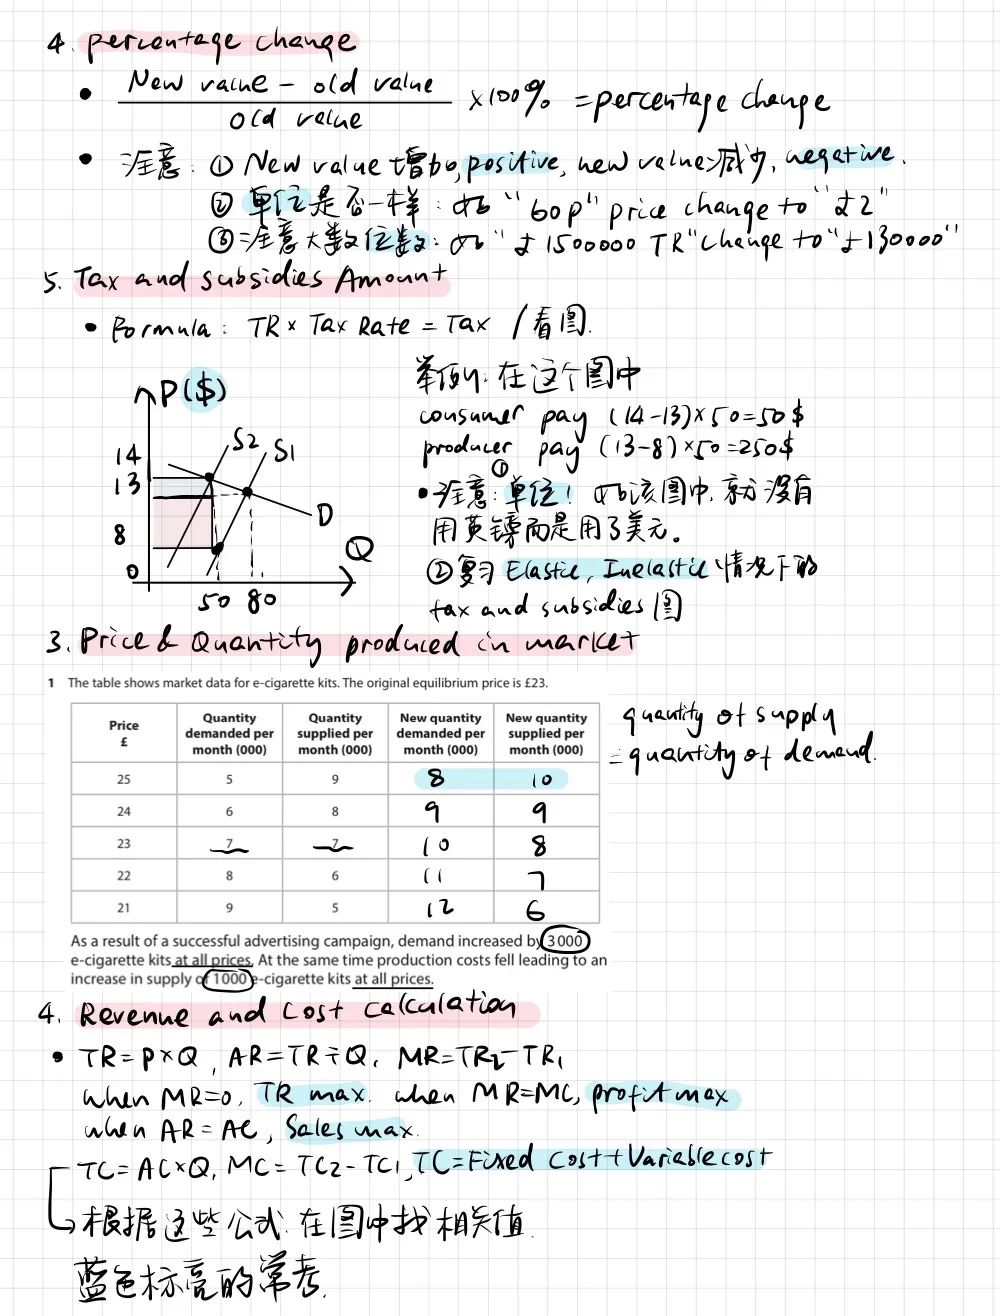 4. percentage change
• New value - old value / old value ×100% = percentage change
• 注意: ① New value 增加, positive, new value 减少, negative.
② 单位是否一样: 如 "60p" price change to "£2"
③ 注意大数位数: 如 "£1500000 TR" change to "£130000"
5. Tax and subsidies Amount
• Formula: TR × Tax Rate = Tax / 看图.
举例: 在这个图中
consumer pay (14-13)×50=50$
producer pay (13-8)×50=250$
• 注意: ① 单位! 如该图中, 就没有
用英镑而是用了美元。
② 复习 Elastic, Inelastic 情况下的
tax and subsidies 图
P($)
S2 S1
14
13
8
0
D
Q
50 80
3. Price & Quantity produced in market
1 The table shows market data for e-cigarette kits. The original equilibrium price is £23.
Price £ | Quantity demanded per month (000) | Quantity supplied per month (000) | New quantity demanded per month (000) | New quantity supplied per month (000)
25 5 9 8 10
24 6 8 9 9
23 7 7 10 8
22 8 6 11 7
21 9 5 12 6
quantity of supply
= quantity of demand.
As a result of a successful advertising campaign, demand increased by 3000
e-cigarette kits at all prices. At the same time production costs fell leading to an
increase in supply of 1000 e-cigarette kits at all prices.
4. Revenue and Cost Calculation
• TR=P×Q, AR=TR÷Q, MR=TR2-TR1
when MR=0, TR max. when MR=MC, profit max
when AR=AC, Sales max.
TC=AC×Q, MC=TC2-TC1, TC=Fixed cost+Variable cost
根据这些公式 在图中找相关值.
蓝色标亮的常考.